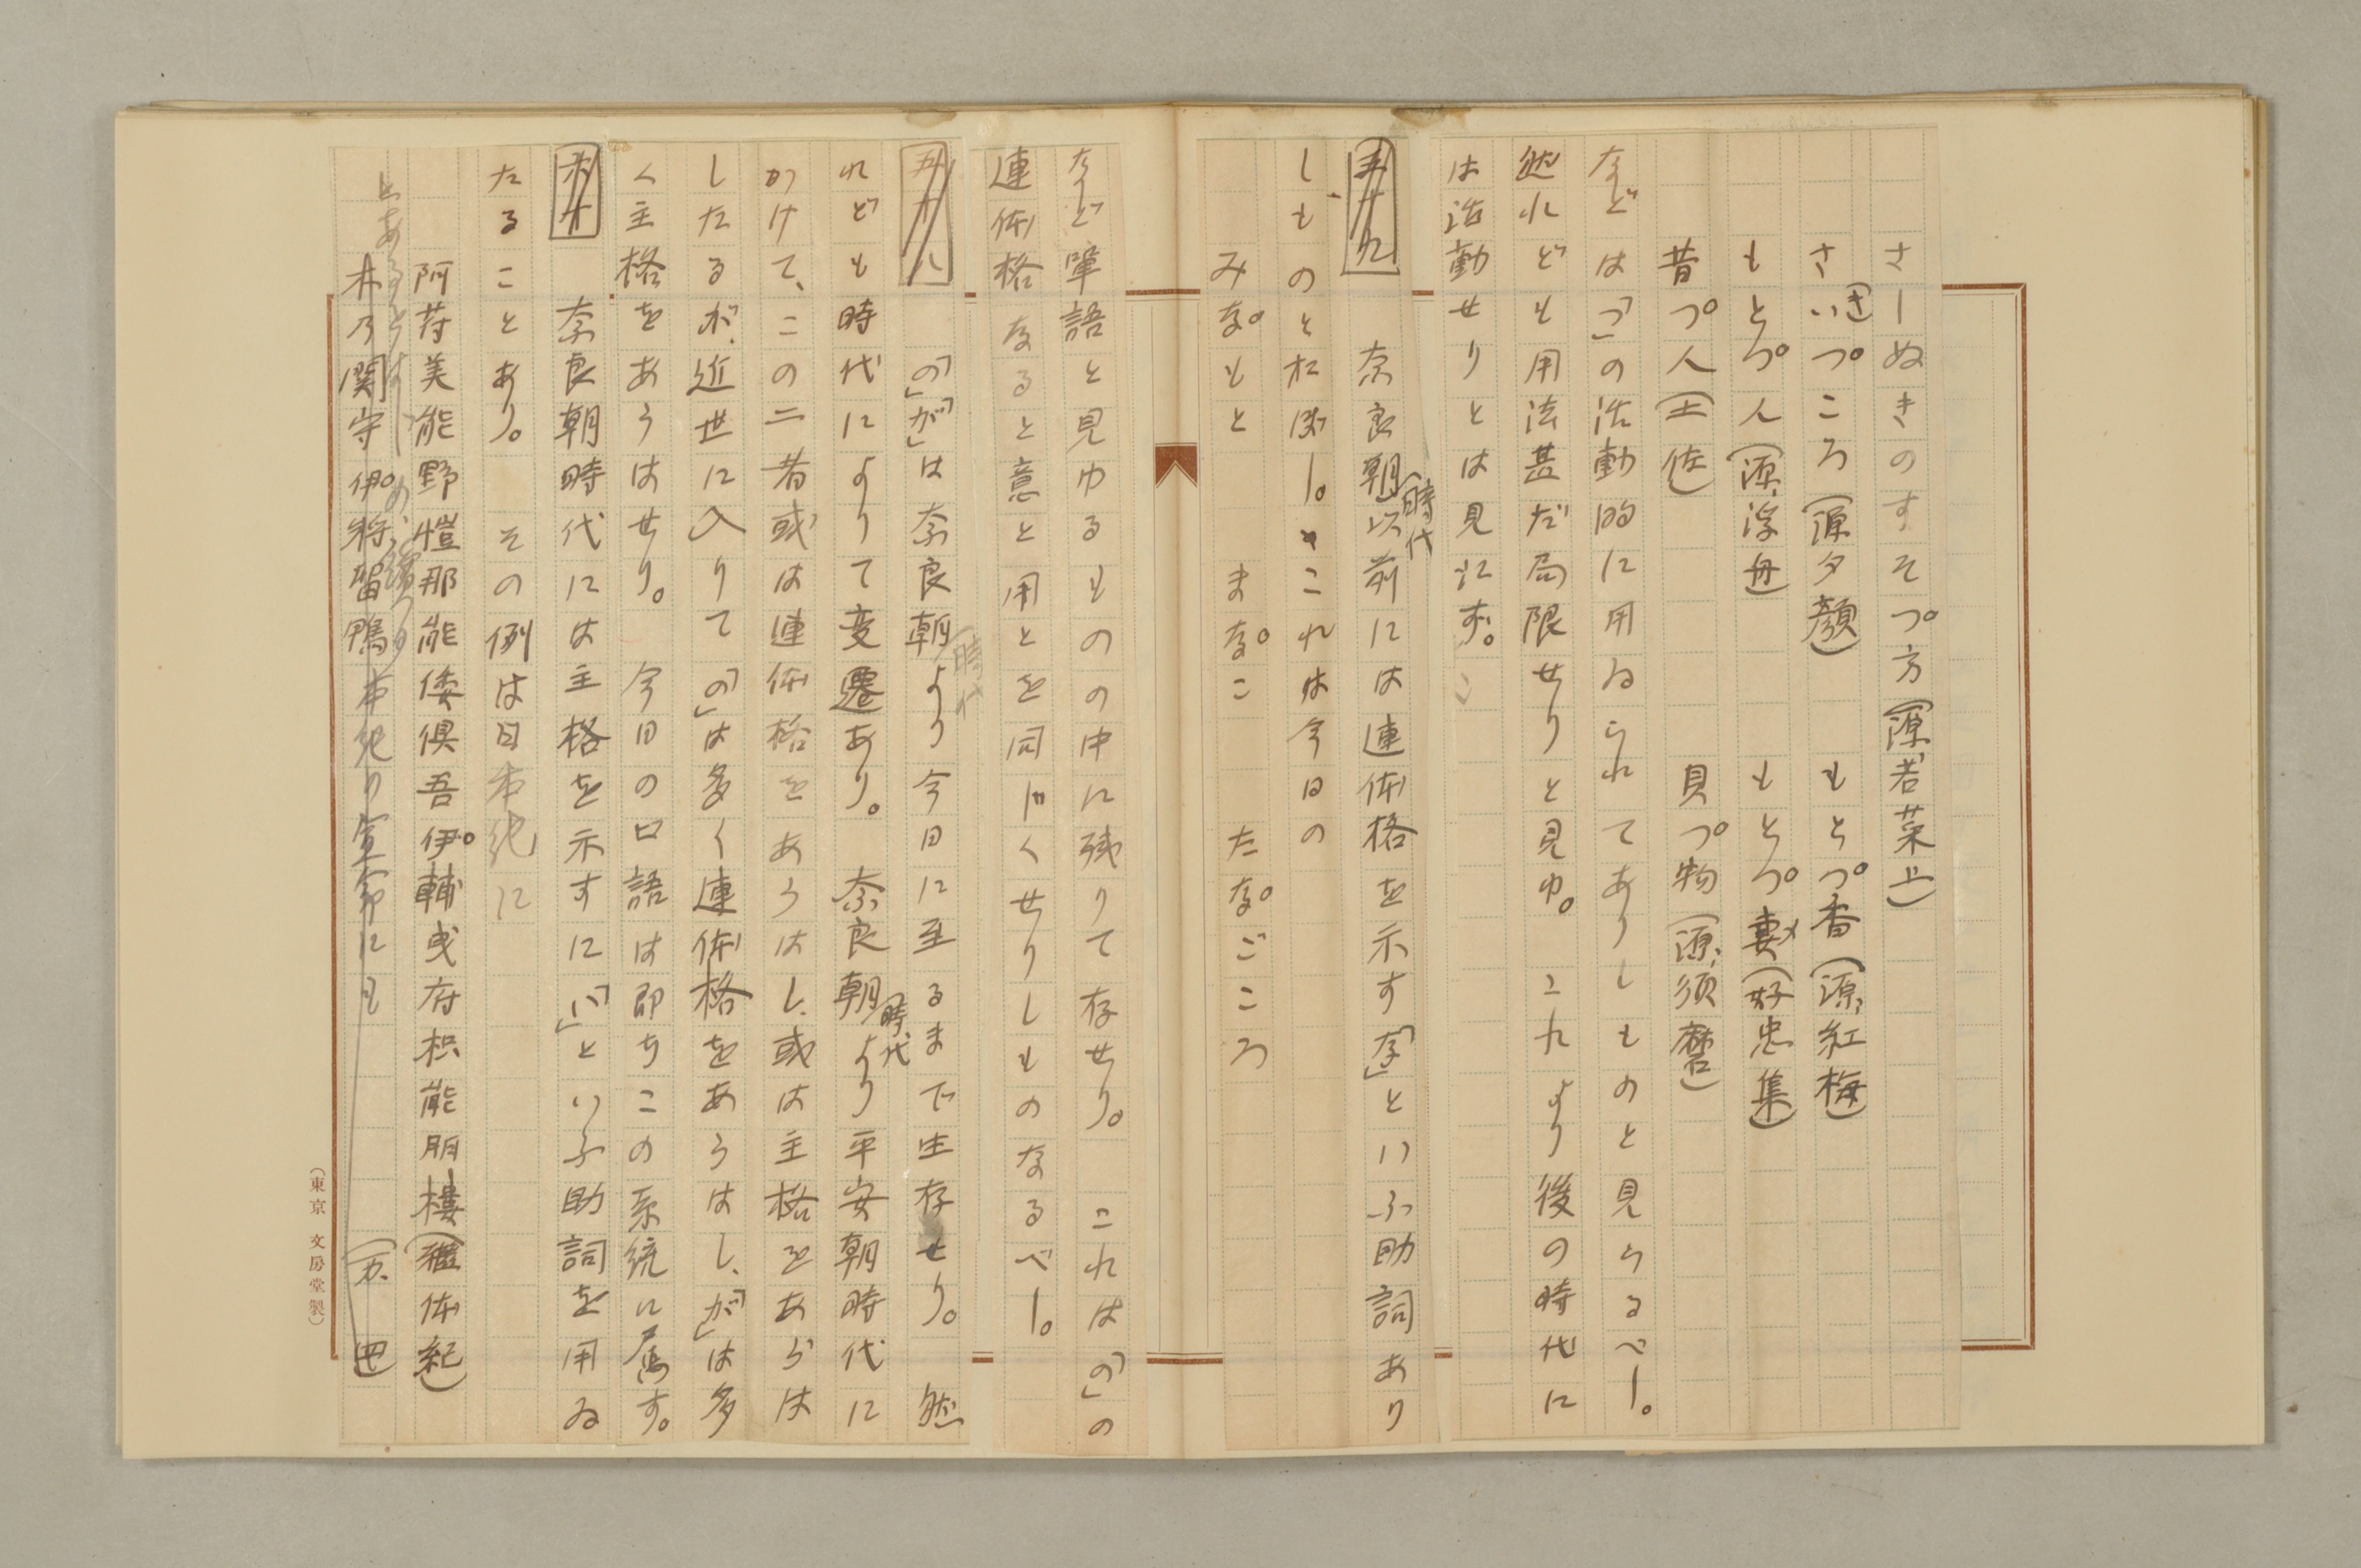 さしぬきのすそつ方（源、若菜上）
さいつころ（源夕顔）　もとつ香（源、紅梅）
き
もとつ人（源、浮舟）　もとつ妻（好忠集）
メ
昔つ人（土佐）　貝つ物（源、須磨）
などは「つ」の活動的に用ゐられてありしものと見らるべし。
然れども用法甚だ局限せりと見ゆ。これより後の時代に
は活動せりとは見江ず。
奈良朝以前には連体格を示す「な」といふ助詞あり
時代
しものとおぼし。これは今日の
みなもと　まなこ　たなごころ
など単語と見ゆるものの中に残りて存せり。これは「の」の
連体格なると意と用とを同じくせりしものなるべし。
「の」「が」は奈良朝より今日に至るまで生存せり。然
時代
れども時代によりて変遷あり。奈良朝より平安朝時代に
時代
かけて、この二者或は連体格をあらはし、或は主格をあらは
したるが、近世に入りて「の」は多く連体格をあらはし、「が」は多
く主格をあらはせり。今日の口語は即ちこの系統に属す。
奈良朝時代には主格を示すに「い」といふ助詞を用ゐ
たることあり。その例は日本紀に
阿苻美能野愷那能倭倶吾伊輔曳府枳能朋樓（継体紀）
とある
木乃関守伊将留鴨
（東京 文房堂製）